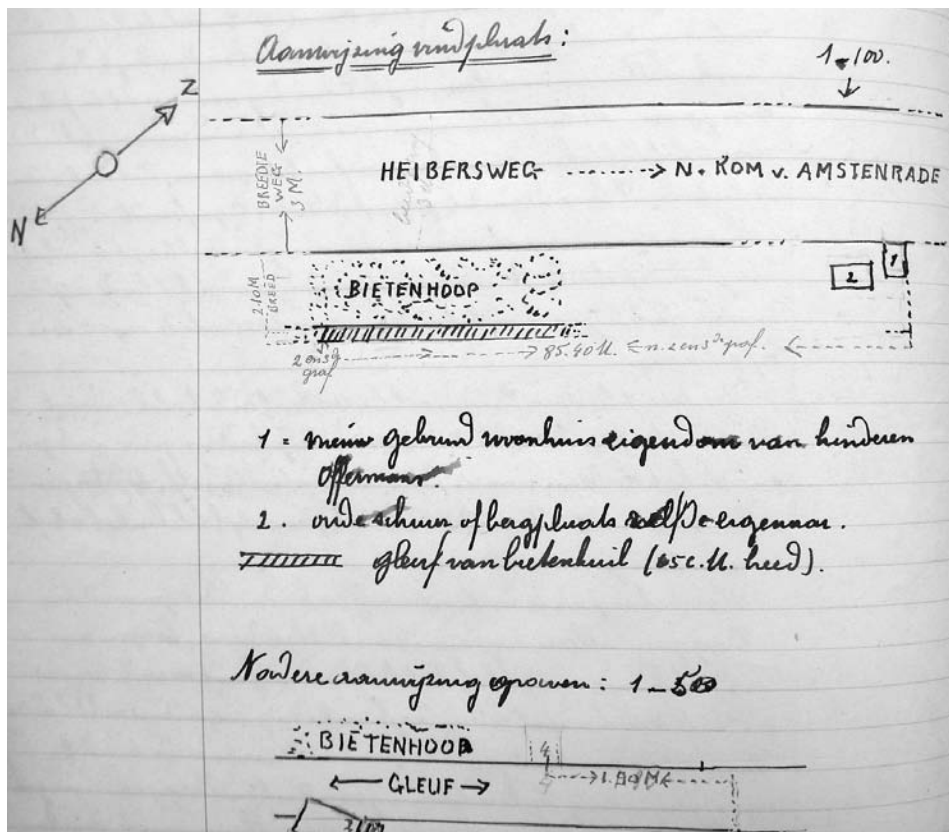 Aanwijzing vindplaats:
1-100.
Z
N
BREEDTE
WEG
3 M.
HEIBERSWEG -------> N. KOM v. AMSTENRADE
2.10 M
BREED
BIETENHOOP
2
1
2 ens
graf
85.40 M.
graf.
1 = nieuw gebouwd woonhuis eigendom van kinderen
Offermans.
2. oude schuur of bergplaats zelfde eigenaar.
gleuf van bietenkuil (65 c.M. breed).
Nadere aanwijzing graven: 1-50
BIETENHOOP
4
← GLEUF →
1.90 M